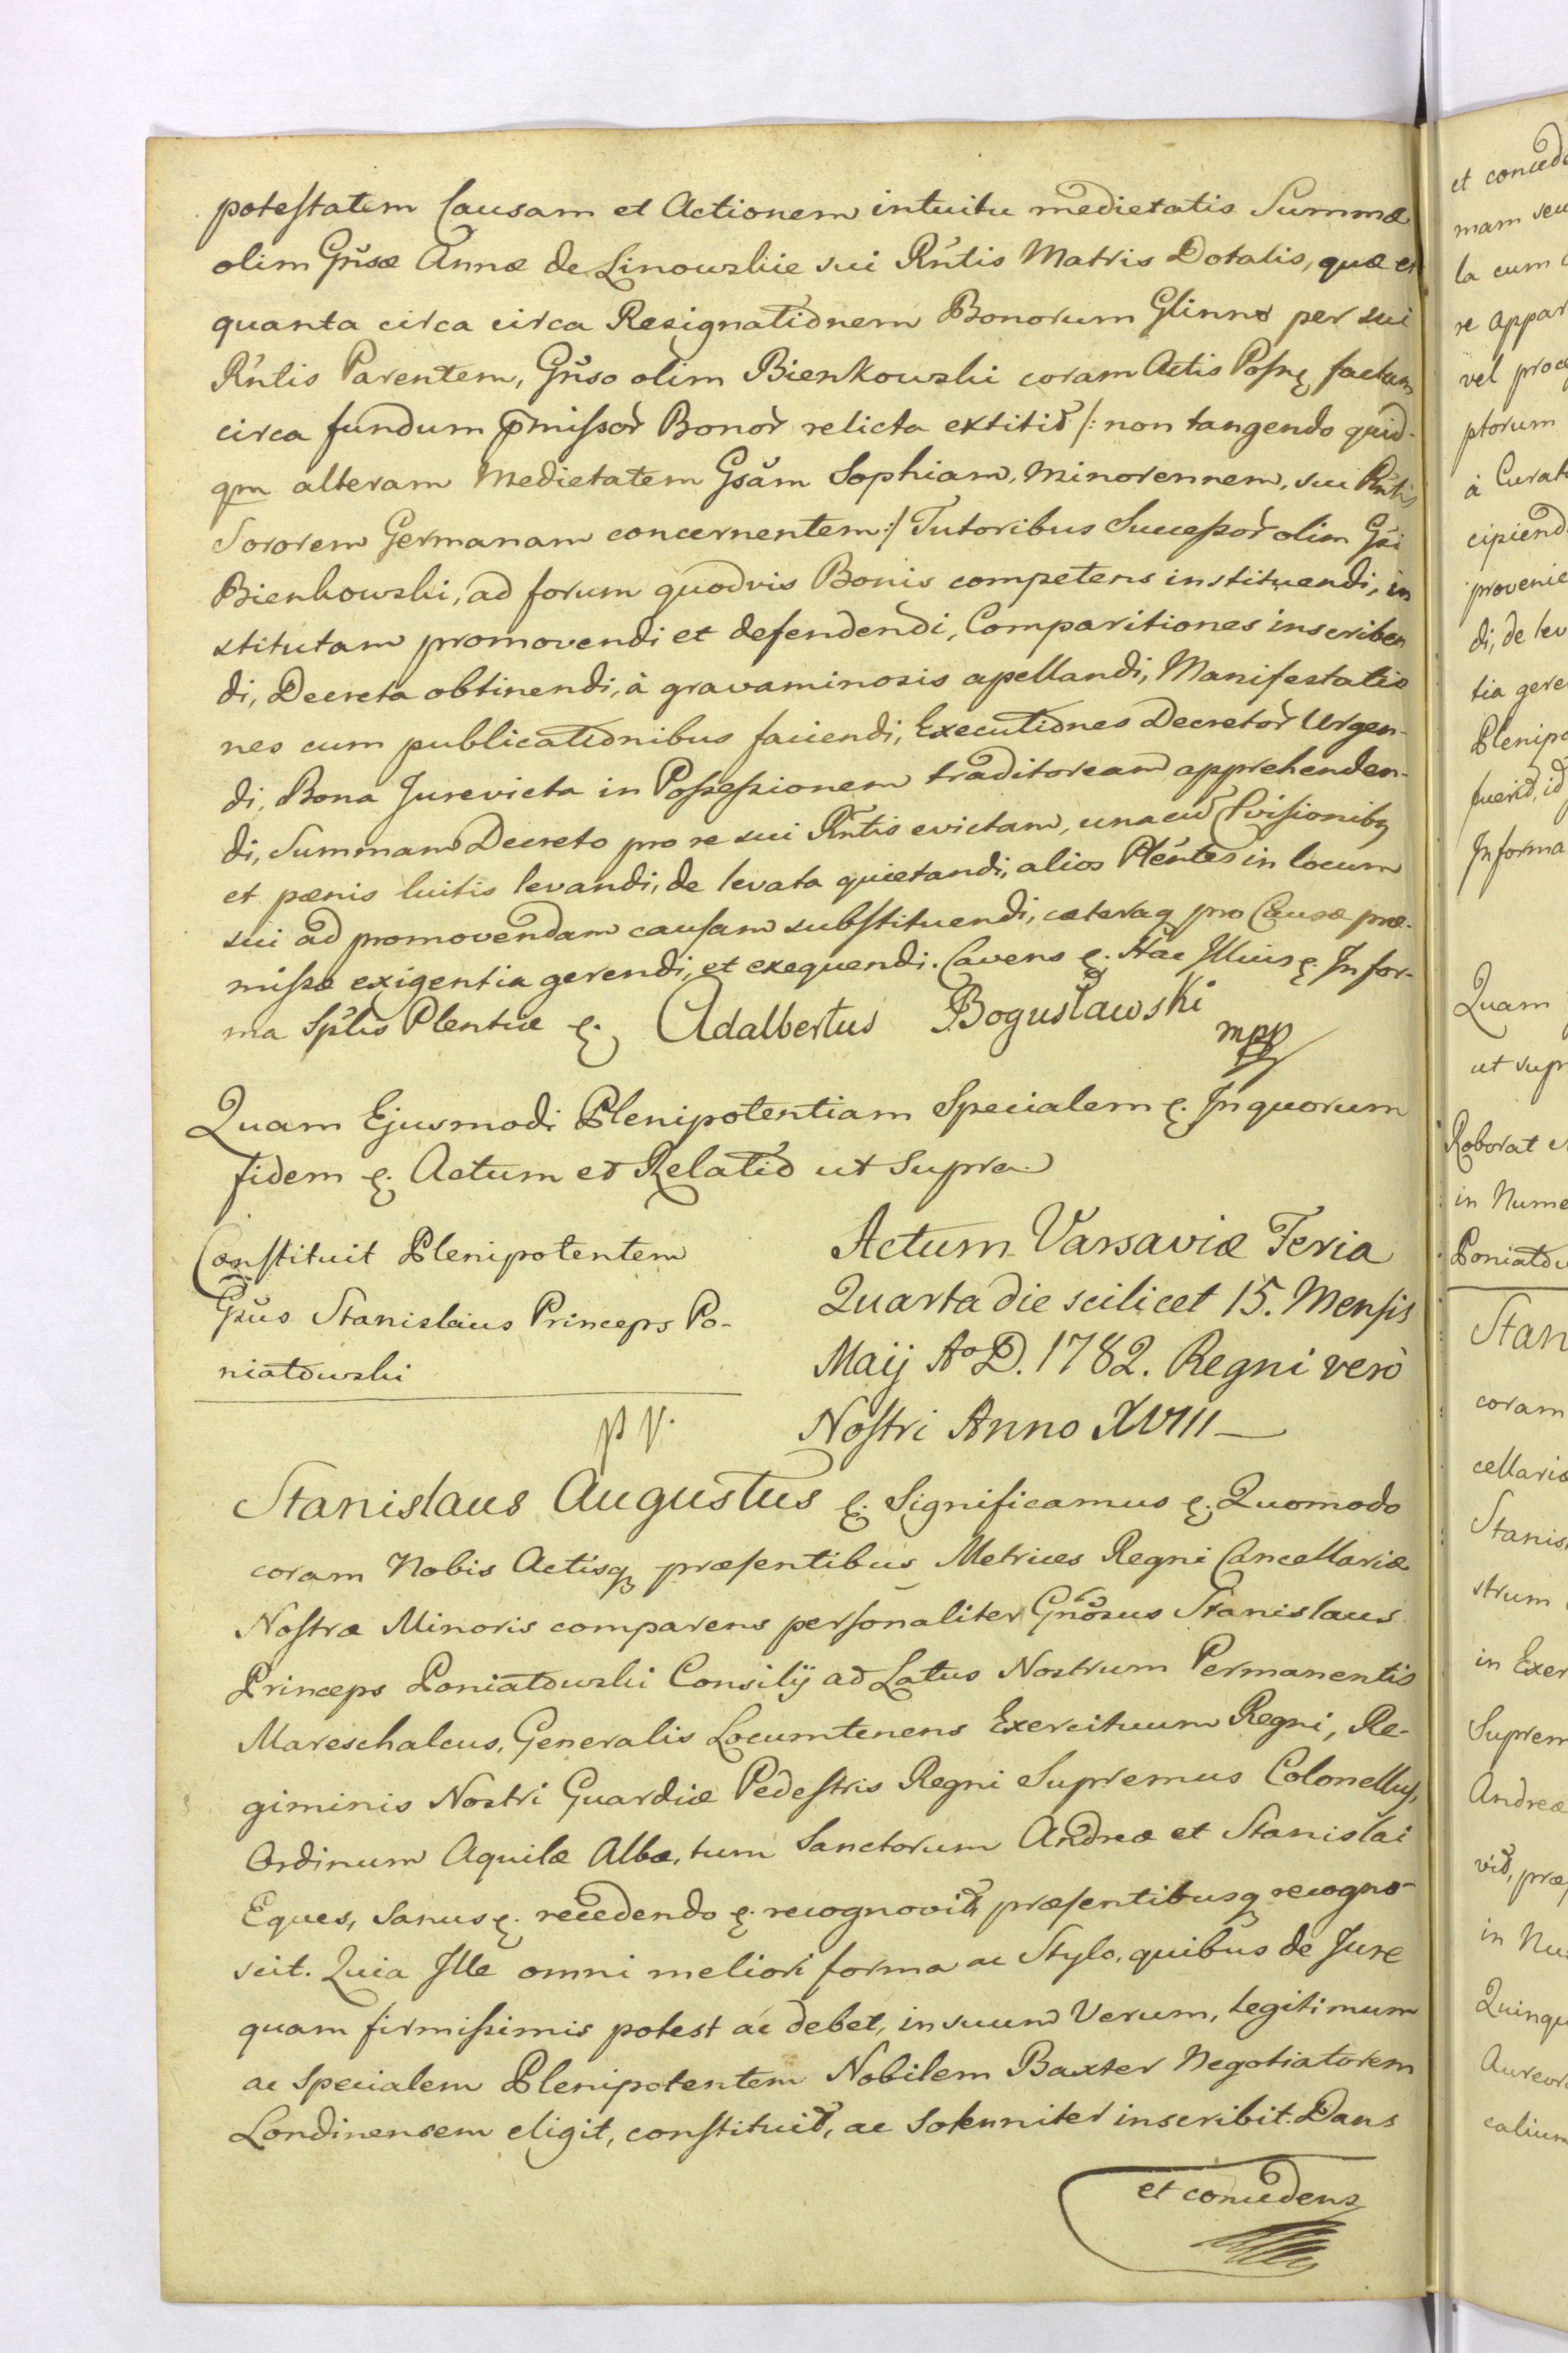 potestatem Causam et Actionem intuitu medietatis Summæ
olim Gñsæ Annæ de Linowskie sui Rñtis Matris Dotalis, quæ et
quanta circa circa Resignationem Bonorum Glinno per sui
Rñtis Parentem, Gñso olim Bienkowski coram Actis Posn. factam
circa fundum pmissor Bonor relicta extitit /: non tangendo quid-
qm alteram Medietatem Gsãm Sophiam, Minorennem, sui Rñtis
Sororem Germanam concernentem :/ Tutoribus Successor olim Gsi
Bienkowski, ad forum quodvis Bonis competens instituendi, in
stitutam promovendi et defendendi, Comparitiones inscriben
di, Decreta obtinendi, à gravaminosis apellandi, Manifestatio
nes cum publicationibus faciendi, Executiones Decretor Urgen-
di, Bona Jurevicta in Possessionem traditoream apprehenden-
di, Summam Decreto pro re sui Rñtis evictam, unacu Pvisionibq
et pænis luitis levandi, de levata quietandi, alios Plentes in locum
sui ad promovendam causam substituendi, cæteraq pro Causæ præ-
missæ exigentia gerendi, et exequendi. Cavens e. Hac Illius e. In for-
ma Splis Plentiæ e. Adalbertus Bogusławski
mpp
Quam Ejusmodi Plenipotentiam Specialem e. In quorum
fidem e. Actum et Relatio ut Supra
Constituit Plenipotentem
Gsus Stanislaus Princeps Po-
niatowski
Actum Varsaviæ Feria
Quarta die scilicet 15. Mensis
Maij Aº D. 1782. Regni verò
Nostri Anno XVIII
Stanislaus Augustus e. Significamus e. Quomodo
coram Nobis Actisq præsentibus Metrices Regni Cancellariæ
Nostræ Minoris comparens personaliter Gnosus Stanislaus
Princeps Poniatowski Consilij ad Latus Nostrum Permanentis
Mareschalcus, Generalis Locumtenens Exercituum Regni, Re-
giminis Nostri Guardiæ Pedestris Regni Supremus Colonellus,
Ordinum Aquilæ Albæ, tum Sanctorum Andreæ et Stanislai
Eques, Sanus e. recedendo e. recognovit, præsentibusq recogno-
scit. Quia Ille omni meliori forma ac Stylo, quibus de Jure
quam firmissimis potest ac debet, in suum Verum, legitimum
ac Specialem Plenipotentem Nobilem Baxter Negotiatorem
Londinensem eligit, constituit, ac Solenniter inscribit. Dans
et concedens
et conced
mam seu
la cum
re appar
vel proce
ptorum
à Curat
cipiend
provenie
di, de lev
tia gere
Plenipo
fuerit, id
In forma
Quam
ut supr
Roborat
in Nume
Poniatow
Stan
coram
cellariæ
Stanis
strum
in Exer
Suprem
Andreæ
vit, præ
in Nu
Quinqu
Aureor
calium